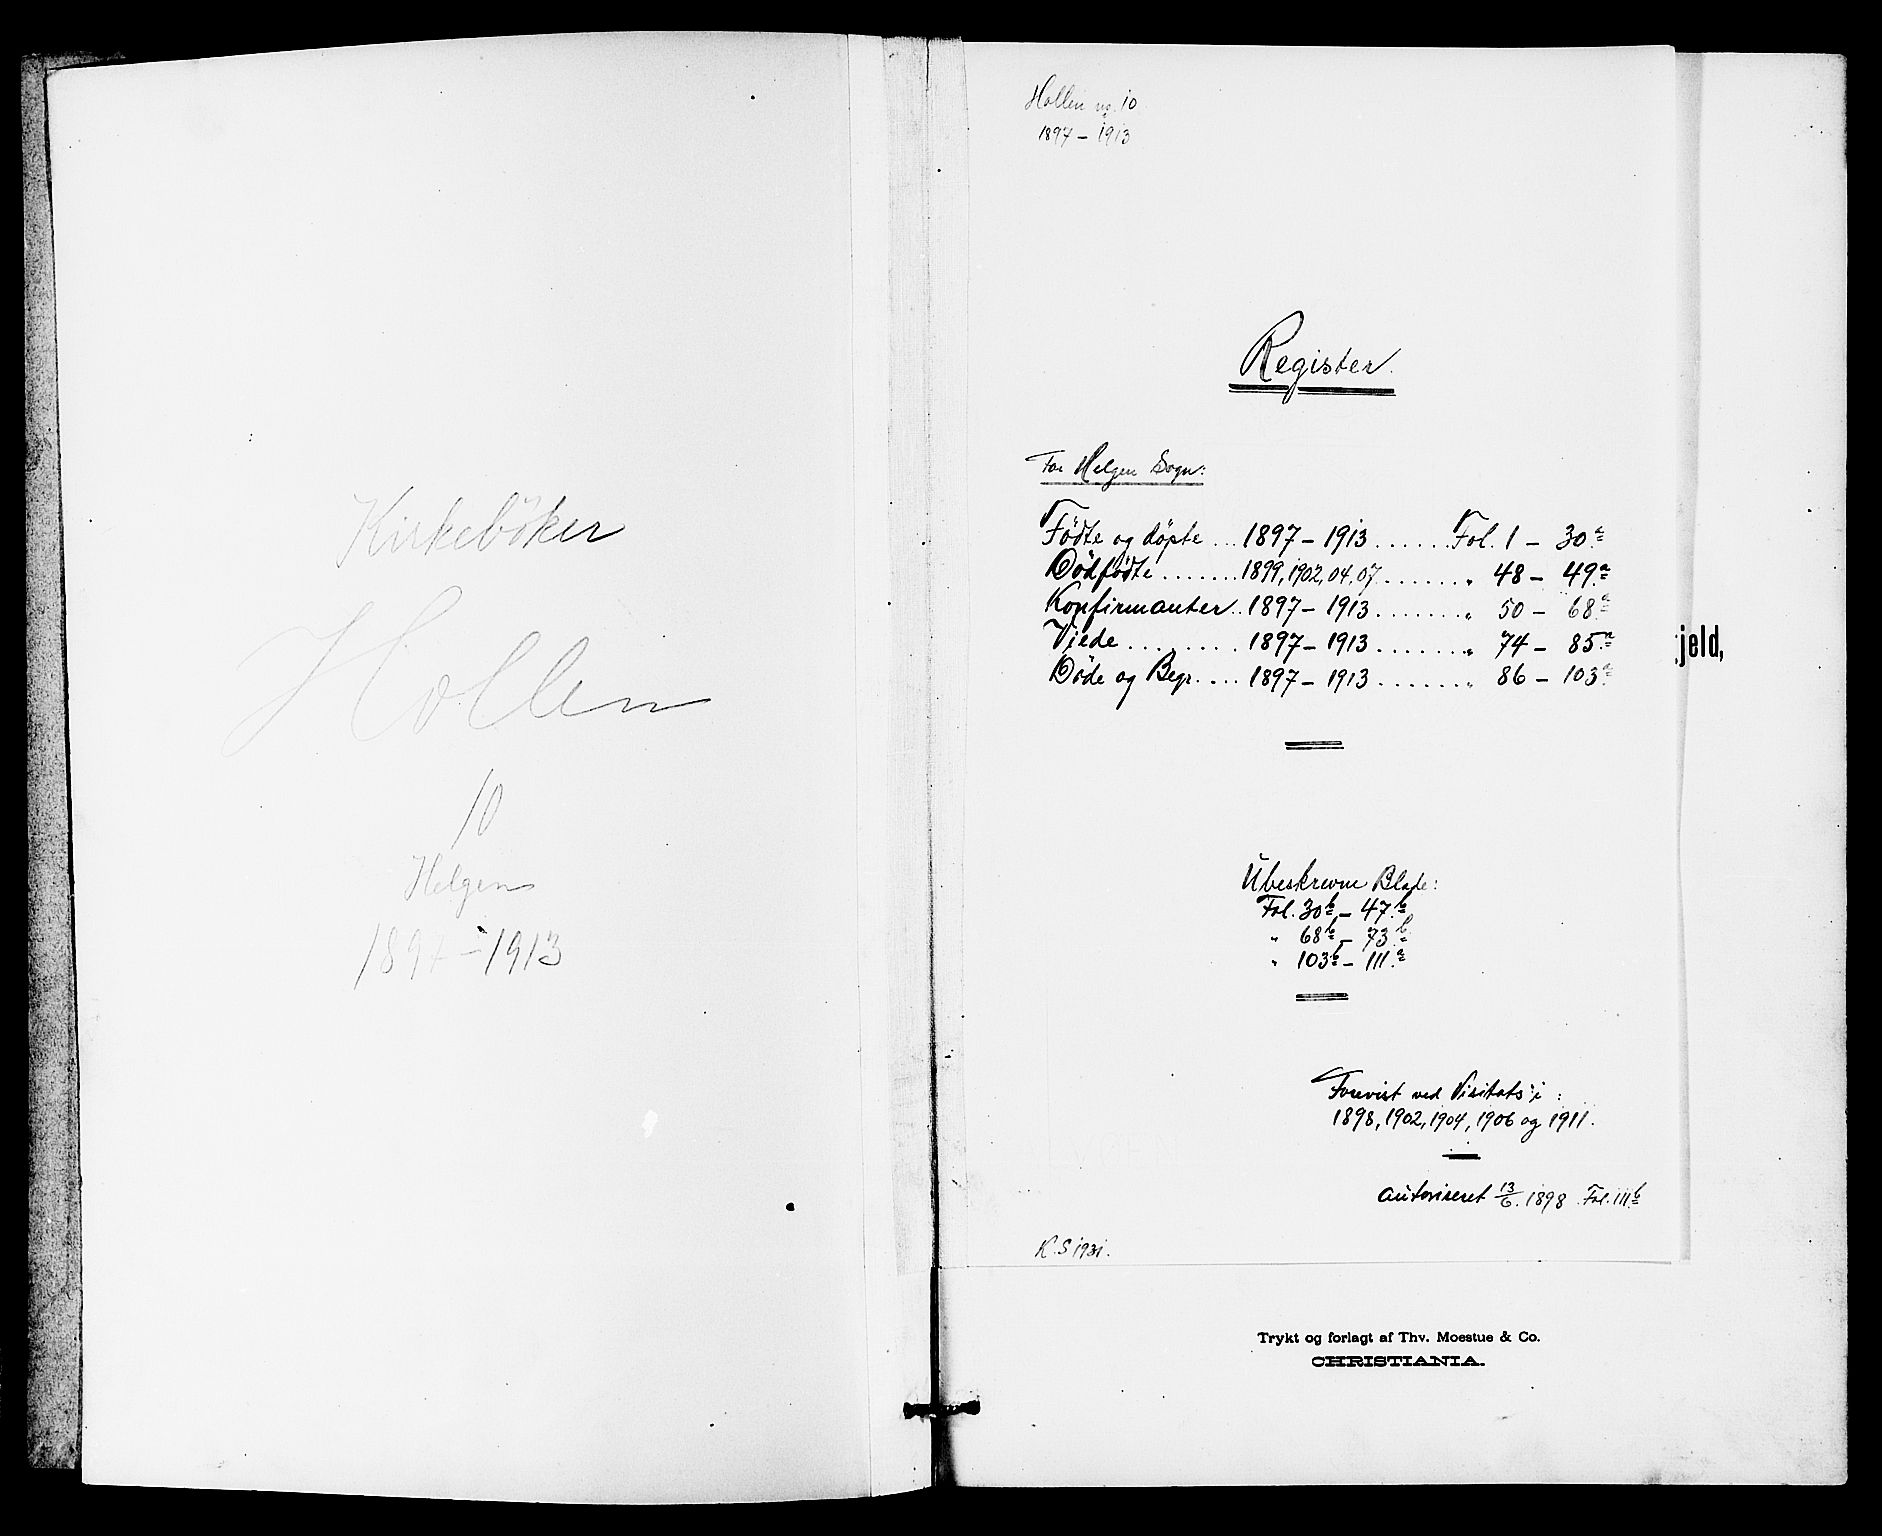 Kirkeböker
Hollen
10
Helgen
1897-1913
Hollen no. 10
1897 - 1913
Register.
For Helgen Sogn:
Födte og döpte ... 1897 - 1913 ...... Fol. 1 - 30a
Dödfödte ....... 1899, 1902, 04, 07 ....... " 48 - 49a
Konfirmanter .. 1897 - 1913 ....... " 50 - 68a
Viede ........ 1897 - 1913 ....... " 74 - 85a
Döde og Begr. .... 1897 - 1913 ....... " 86 - 103a
Ubeskrevne Blade:
Fol. 30b - 47b
" 68b - 73b
" 103b - 111a
Forevist ved Visitats i:
1898, 1902, 1904, 1906 og 1911.
Autoriseret 13/6. 1898 Fol. 111b
K. S 1931.
jeld,
Trykt og forlagt af Thv. Moestue & Co.
CHRISTIANIA.